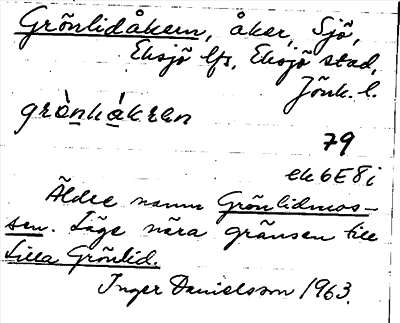 Grönlidåkern, åker, Sjö,
Eksjö lfs, Eksjö stad,
Jönk. l.
79
ek 6E8i
Äldre namn Grönlidmos-
sen. Läge nära gränsen till
Lilla Grönlid.
Inger Danielsson 1963.